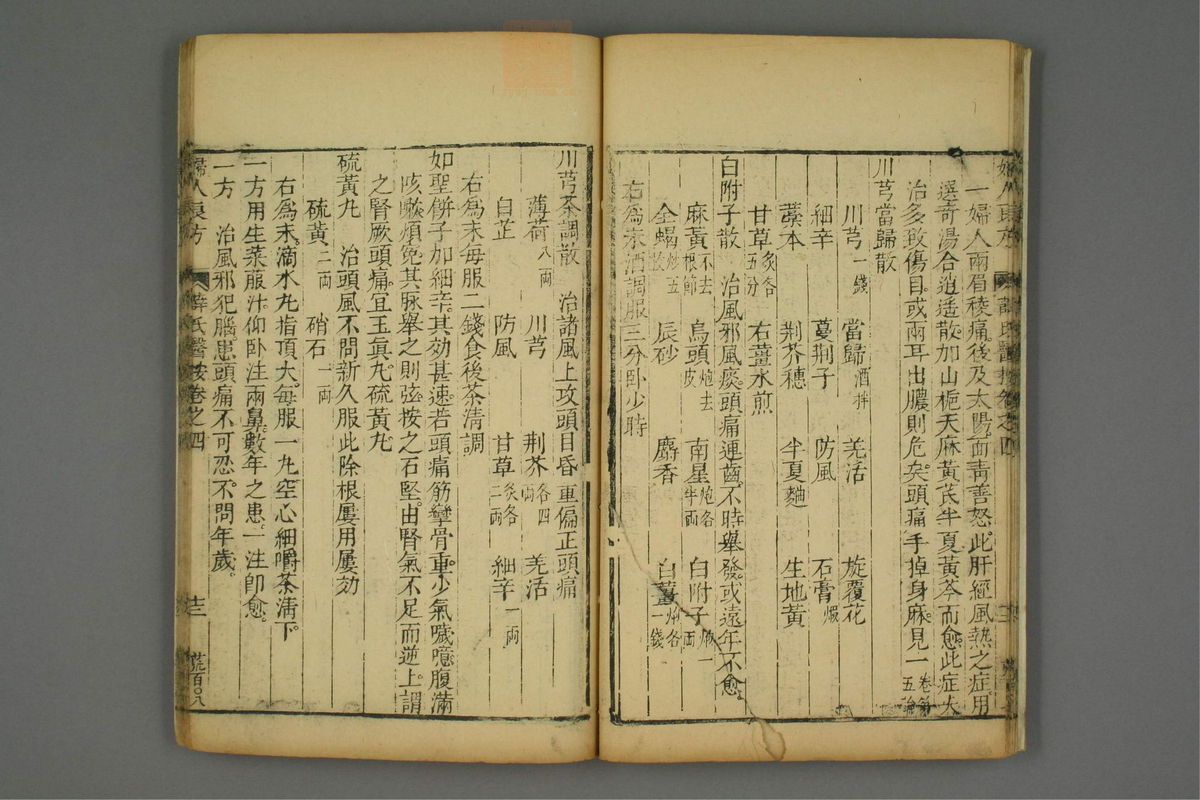 一婦人兩眉稜痛後及太陽面青善怒此肝經風熱之症用
選奇湯合逍遙散加山梔天麻黃芪半夏黃芩而愈此症大
治多致傷目或兩耳出膿則危矣頭痛手掉身麻見一卷第五論
川芎當歸散
川芎一錢 當歸酒拌 羌活 旋覆花
細辛 蔓荆子 防風 石膏煅
藁本 荆芥穗 半夏麯 生地黃
甘草炙各五分 右薑水煎
白附子散 治風邪風痰頭痛連齒不時舉發或遠年不愈
麻黃不去根節 烏頭炮去皮 南星炮各半両 白附子一両
全蝎炒五 辰砂 麝香 白薑炮各一錢
右為末酒調服三分卧少時
川芎茶調散 治諸風上攻頭目昏重偏正頭痛
薄荷八両 川芎 荆芥各四両 羌活
白芷 防風 甘草炙各二両 細辛一両
右爲末每服二錢食後茶清調
如聖餅子加細辛其効甚速若頭痛筋攣骨重少氣噦噫腹滿
咳嗽煩冤其脉舉之則弦按之石堅由腎氣不足而逆上謂
之腎厥頭痛宜玉真丸硫黃丸
硫黃丸 治頭風不問新久服此除根屢用屢効
硫黃二両 硝石一両
右爲末滴水丸指頂大每服一丸空心細嚼茶清下
一方用生萊菔汁仰卧注兩鼻數年之患一注卽愈
一方 治風邪犯腦患頭痛不可忍不問年歲
婦人良方 薛氏醫按卷之四 十三 荒百〇八